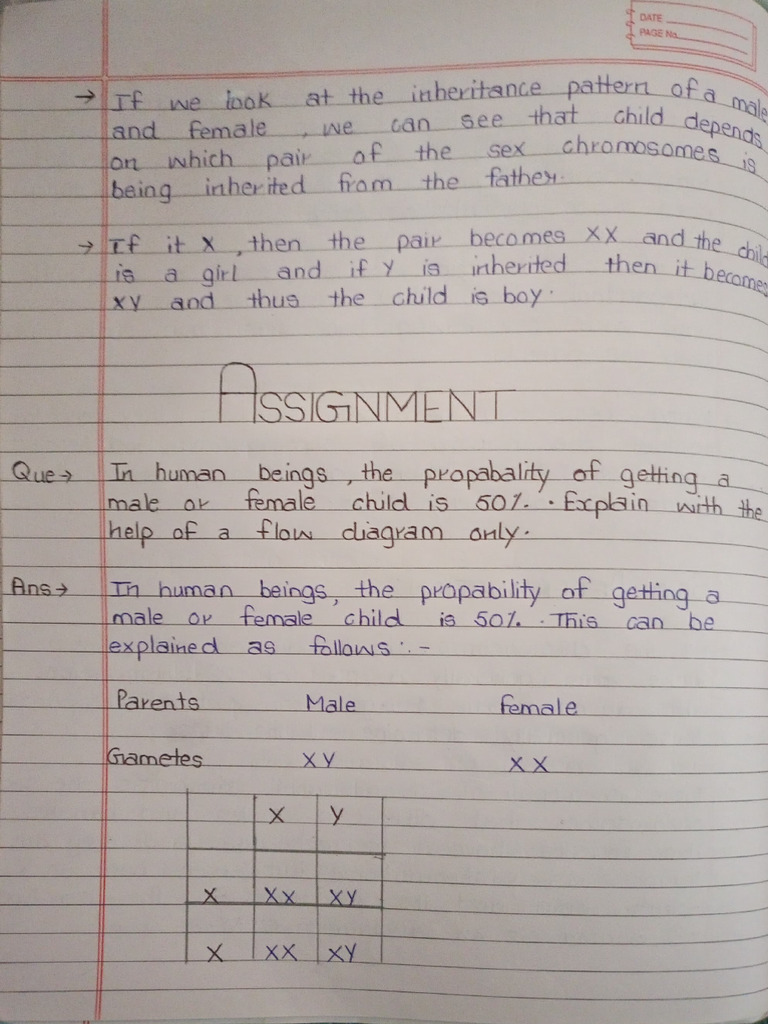 DATE
PAGE No.
→ If we look at the inheritance pattern of a male
and female , we can see that child depends
on which pair of the sex chromosomes is
being inherited from the father.
→ If it X , then the pair becomes XX and the child
is a girl and if Y is inherited then it becomes
XY and thus the child is boy.
ASSIGNMENT
Que → In human beings , the propabality of getting a
male or female child is 50%. . Explain with the
help of a flow diagram only.
Ans → In human beings, the propability of getting a
male or female child is 50%. . This can be
explained as follows :-
Parents Male female
Gametes XY XX
X Y
X XX XY
X XX XY